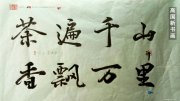 茶遍千山
香飘万里
高国新书画